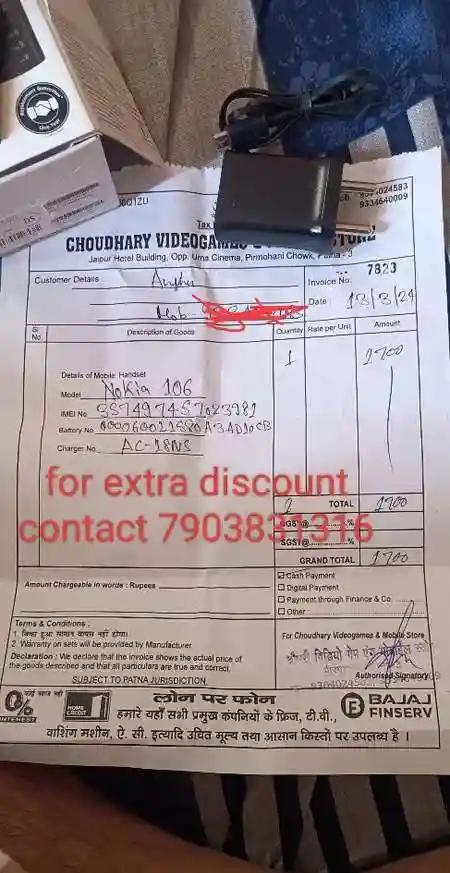 Replacement Guarantee
One Year
6Q1ZU
Tax
024583
9334640009
CHOUDHARY VIDEOGAMES
Jaipur Hotel Building, Opp. Uma Cinema, Pirmohani Chowk, Patna - 3
Customer Details
Invoice No. 7823
Mob-
Date: 13/3/24
Sl. No. Description of Goods Quantity Rate per Unit Amount
1 1700
Details of Mobile Handset
Model NOKIA 106
IMEI No.
Battery No.
Charger No. AC-18NS
for extra discount
contact 7903831316
1 TOTAL 1700
CGST@..............%
SGST@..............%
GRAND TOTAL 1700
Amount Chargeable in words : Rupees
Cash Payment
Digital Payment
Payment through Finance & Co.
Other
Terms & Conditions :
1. बिका हुआ सामान वापस नहीं होगा।
2. Warranty on sets will be provided by Manufacturer
Declaration : We declare that the invoice shows the actual price of
the goods described and that all particulars are true and correct.
SUBJECT TO PATNA JURISDICTION.
For Choudhary Videogames & Mobile Store
Authorised Signatory
कोई ब्याज नहीं
0%
INTEREST
HOME CREDIT
लोन पर फोन
BAJAJ
FINSERV
हमारे यहाँ सभी प्रमुख कंपनियों के फ्रिज, टी.वी.,
वाशिंग मशीन, ऐ. सी. इत्यादि उचित मूल्य तथा आसान किस्तों पर उपलब्ध है ।